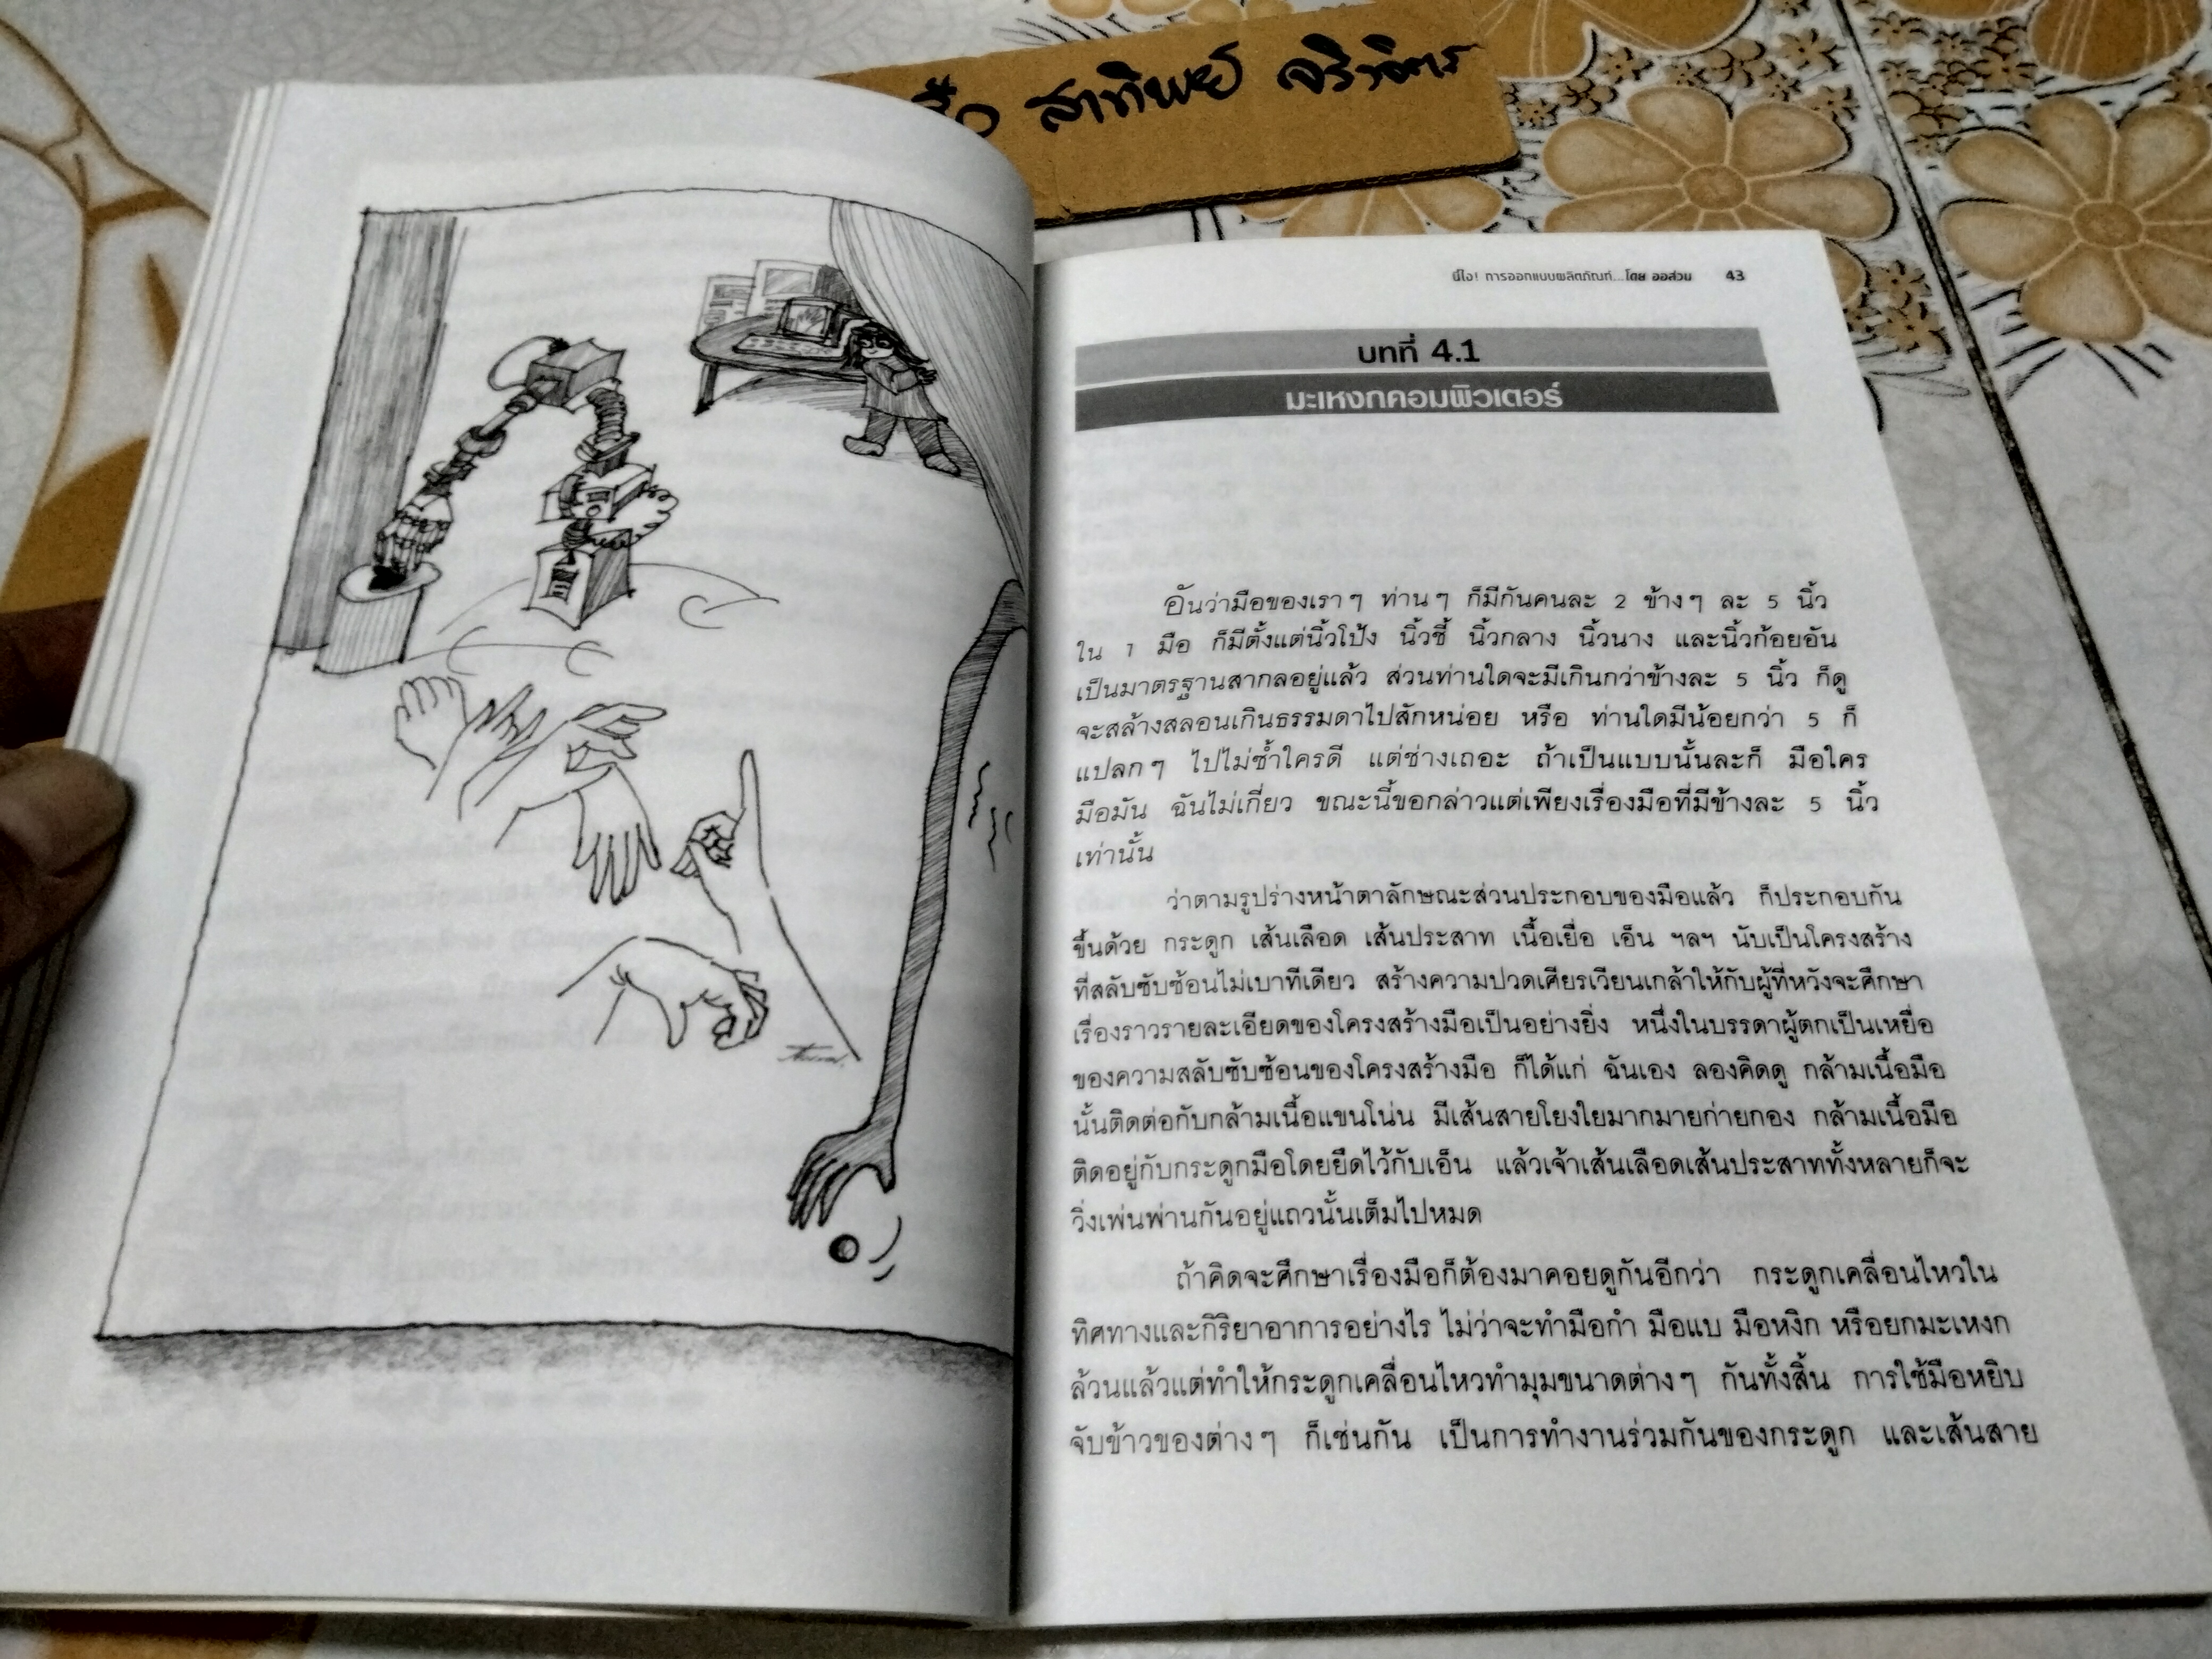 สาทิพย์
นี่ไง! การออกแบบผลิตภัณฑ์...โดย ออส่วน 43
บทที่ 4.1
มะเหงกคอมพิวเตอร์
อันว่ามือของเราๆ ท่านๆ ก็มีกันคนละ 2 ข้างๆ ละ 5 นิ้ว
ใน 1 มือ ก็มีตั้งแต่นิ้วโป้ง นิ้วชี้ นิ้วกลาง นิ้วนาง และนิ้วก้อยอัน
เป็นมาตรฐานสากลอยู่แล้ว ส่วนท่านใดจะมีเกินกว่าข้างละ 5 นิ้ว ก็ดู
จะสล้างสลอนเกินธรรมดาไปสักหน่อย หรือ ท่านใดมีน้อยกว่า 5 ก็
แปลกๆ ไปไม่ซ้ำใครดี แต่ช่างเถอะ ถ้าเป็นแบบนั้นละก็ มือใคร
มือมัน ฉันไม่เกี่ยว ขณะนี้ขอกล่าวแต่เพียงเรื่องมือที่มีข้างละ 5 นิ้ว
เท่านั้น
ว่าตามรูปร่างหน้าตาลักษณะส่วนประกอบของมือแล้ว ก็ประกอบกัน
ขึ้นด้วย กระดูก เส้นเลือด เส้นประสาท เนื้อเยื่อ เอ็น ฯลฯ นับเป็นโครงสร้าง
ที่สลับซับซ้อนไม่เบาทีเดียว สร้างความปวดเศียรเวียนเกล้าให้กับผู้ที่หวังจะศึกษา
เรื่องราวรายละเอียดของโครงสร้างมือเป็นอย่างยิ่ง หนึ่งในบรรดาผู้ตกเป็นเหยื่อ
ของความสลับซับซ้อนของโครงสร้างมือ ก็ได้แก่ ฉันเอง ลองคิดดู กล้ามเนื้อมือ
นั้นติดต่อกับกล้ามเนื้อแขนโน่น มีเส้นสายโยงใยมากมายก่ายกอง กล้ามเนื้อมือ
ติดอยู่กับกระดูกมือโดยยึดไว้กับเอ็น แล้วเจ้าเส้นเลือดเส้นประสาททั้งหลายก็จะ
วิ่งเพ่นพ่านกันอยู่แถวนั้นเต็มไปหมด
ถ้าคิดจะศึกษาเรื่องมือก็ต้องมาคอยดูกันอีกว่า กระดูกเคลื่อนไหวใน
ทิศทางและกิริยาอาการอย่างไร ไม่ว่าจะทำมือกำ มือแบ มือหงิก หรือยกมะเหงก
ล้วนแล้วแต่ทำให้กระดูกเคลื่อนไหวทำมุมขนาดต่างๆ กันทั้งสิ้น การใช้มือหยิบ
จับข้าวของต่างๆ ก็เช่นกัน เป็นการทำงานร่วมกันของกระดูก และเส้นสาย